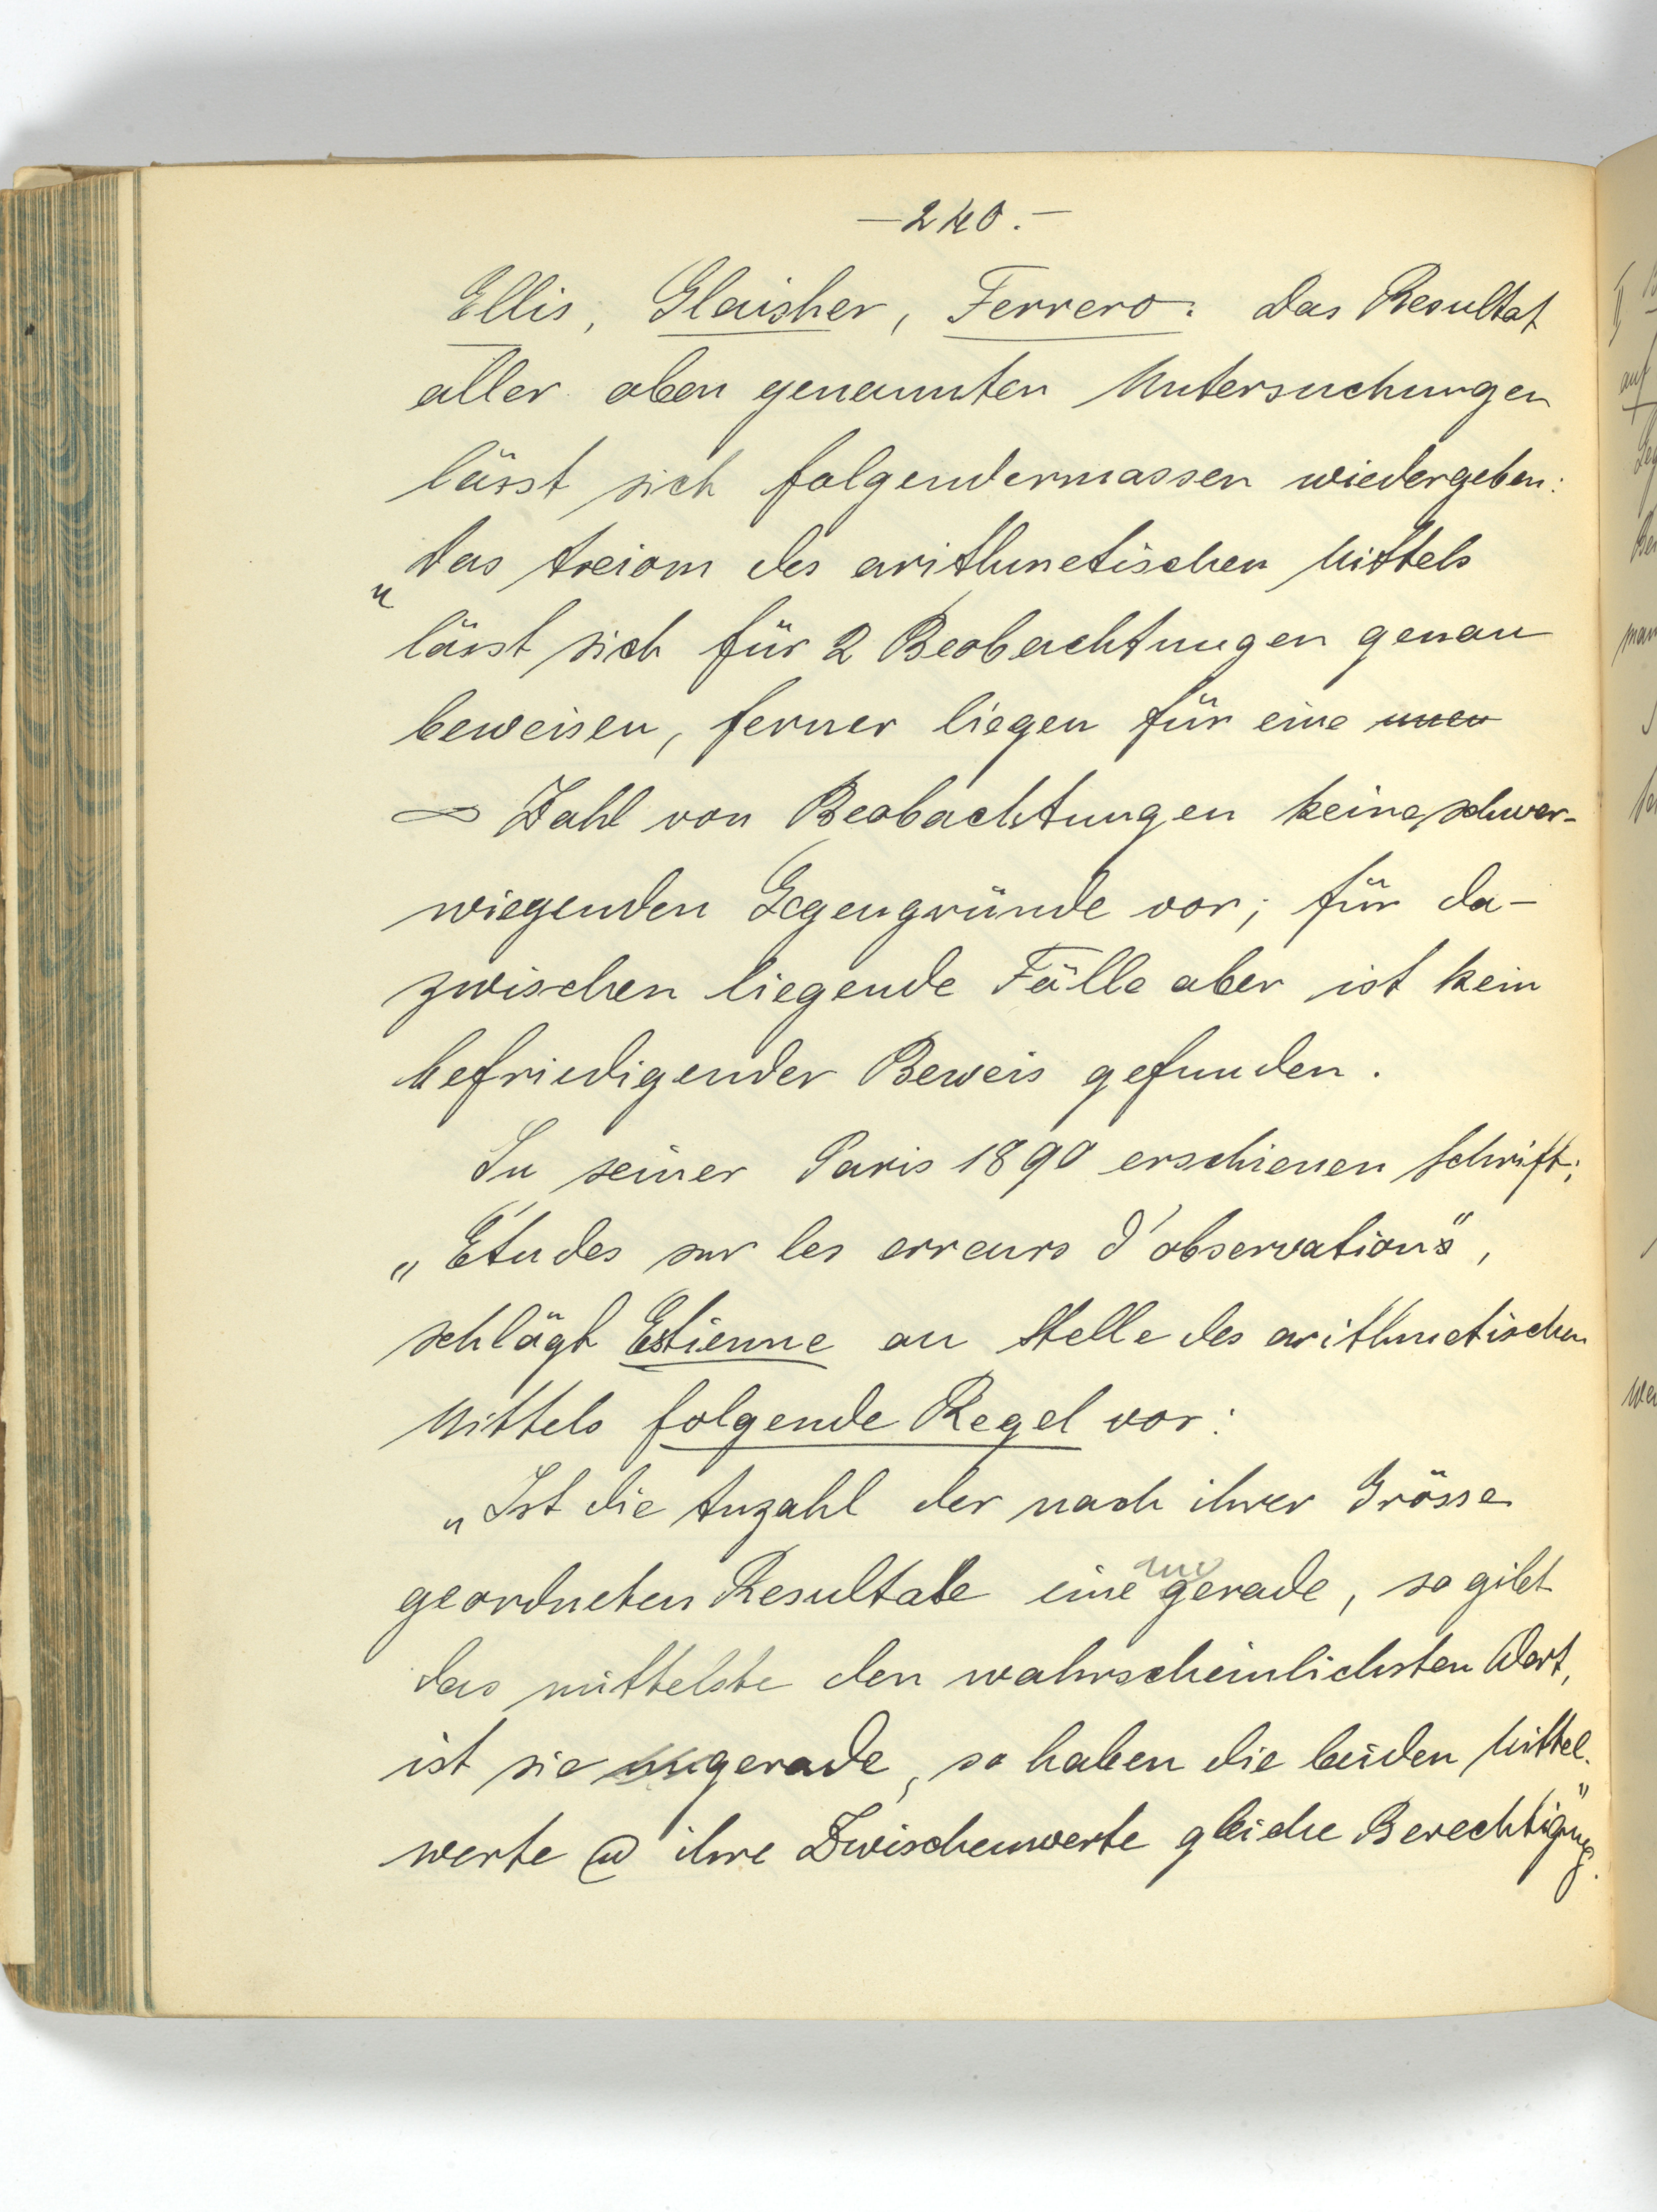 —240.—
Ellis, Glaisher, Ferrero. Das Resultat
aller oben genannten Untersuchungen
lässt sich folgendermassen wiedergeben:
„Das Axiom des arithmetischen Mittels
lässt sich für 2 Beobachtungen genau
beweisen, ferner liegen für eine unen
∞ Zahl von Beobachtungen keine schwer-
wiegenden Gegengründe vor; für da-
zwischen liegende Fälle aber ist kein
befriedigender Beweis gefunden.
In seiner Paris 1890 erschienen Schrift:
„Études sur les erreurs d'observations",
schlägt Estienne an Stelle des arithmetischen
Mittels folgende Regel vor:
„Ist die Anzahl der nach ihrer Grösse
geordneten Resultate eine un gerade, so gibt
das mittelste den wahrscheinlichsten Wert,
ist sie ungerade, so haben die beiden Mittel-
werte u ihre Zwischenwerte gleiche Berechtigung."